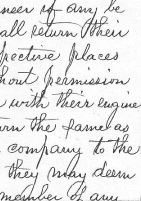 neer if any be
all return their
pective places
hout permission
with their engine
urn the same as
company to the
they may deem
member of any